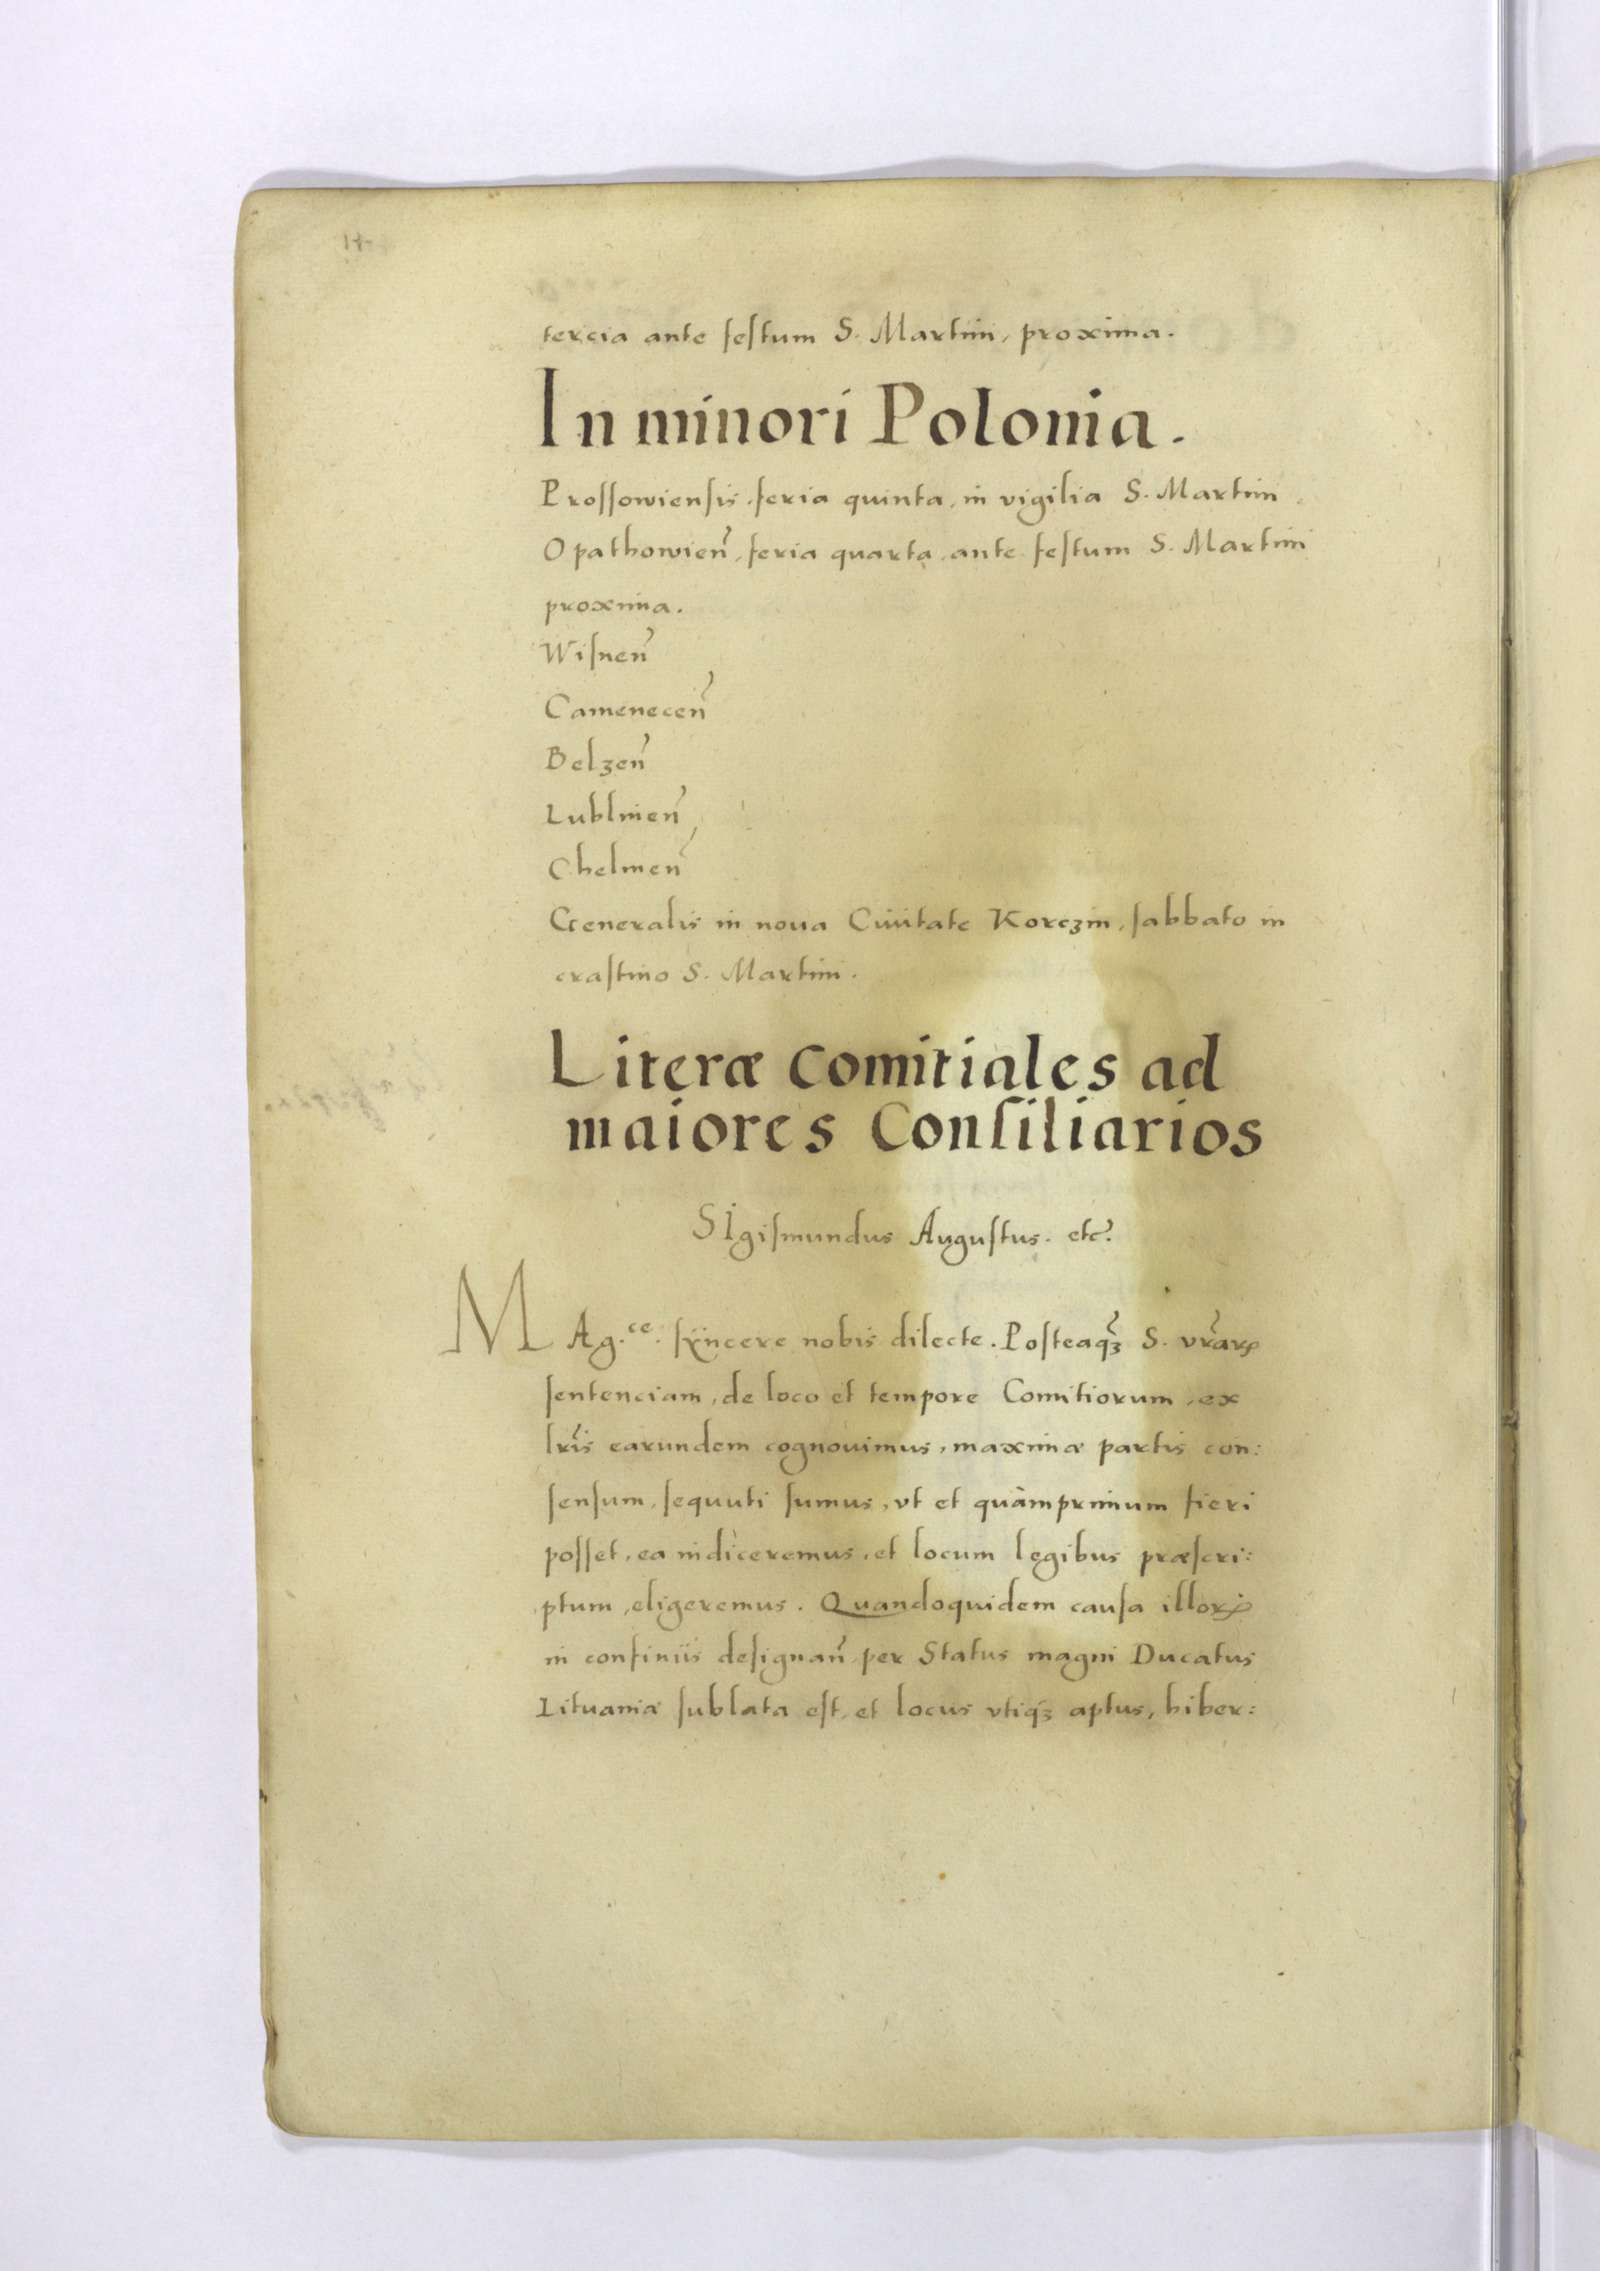 tercia ante festum S. Martini, proxima.
In minori Polonia.
Prossowiensis, feria quinta, in vigilia S. Martini
Opathowien̉, feria quarta, ante festum S. Martini
proxima.
Wisnen̉
Camenecen̉
Belzen̉
Lublinen̉
Chelmen̉
Generalis in noua Ciuitate Korczin, sabbato in
crastino S. Martini.
Literæ comitiales ad
maiores Consiliarios
SIgismundus Augustus. etc̉.
MAg.ce. sÿncere nobis dilecte. Posteaqꝫ̉ S. vr̉arꝝ
sentenciam, de loco et tempore Comitiorum, ex
lr̉is earundem cognouimus, maximæ partis con:
sensum, sequuti sumus, vt et quàmprimum fieri
posset, ea indiceremus, et locum legibus præscri:
ptum, eligeremus. Quandoquidem causa illorꝝ
in confiniis designan̉, per Status magni Ducatus
Lituaniæ sublata est, et locus vtiqꝫ aptus, hiber: